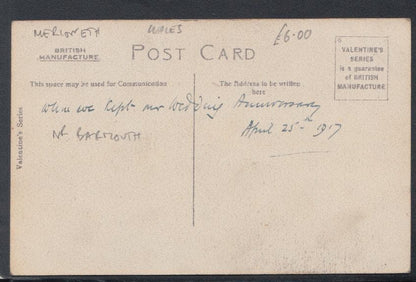 MERIONETH WALES £6.00
BRITISH
MANUFACTURE
POST CARD
VALENTINE'S
SERIES
is a guarantee
of BRITISH
MANUFACTURE
This space may be used for Communication
The Address to be written
here
when we kept our wedding Anniversary
April 25th 1917
Nr BARMOUTH
Valentine's Series